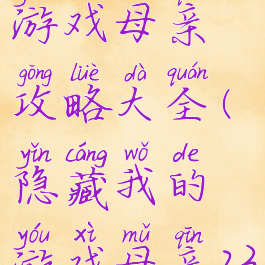 游戏母亲
gōng lüè dà quán
攻略大全(
yǐn cáng wǒ de
隐藏我的
yóu xì mǔ qīn
游戏母亲23